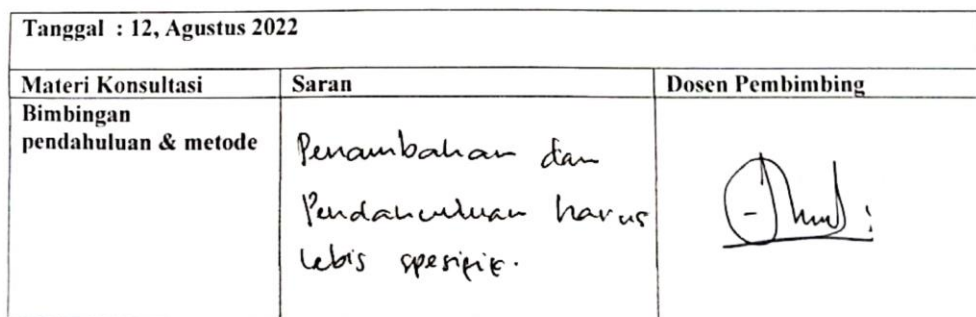 Tanggal : 12, Agustus 2022
Materi Konsultasi Saran Dosen Pembimbing
Bimbingan
pendahuluan & metode
Penambahan dan
Pendahuluan harus
lebis spesifik.